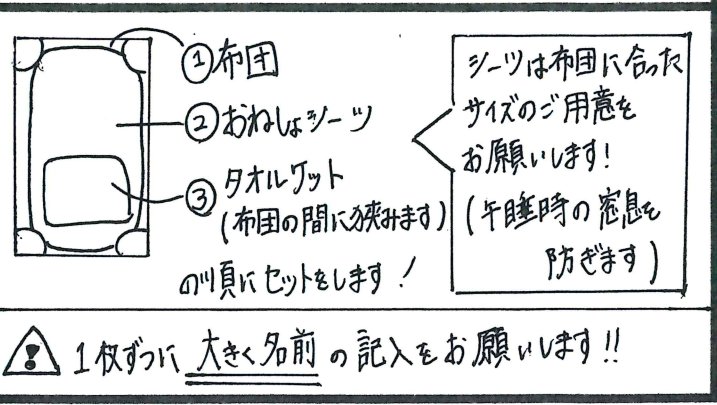 ①布団
②おねしょシーツ
③タオルケット
(布団の間に挟みます)
の順にセットをします!
シーツは布団に合った
サイズのご用意を
お願いします!
(午睡時の窒息を
防ぎます)
1枚ずつに 大きく名前 の記入をお願いします!!